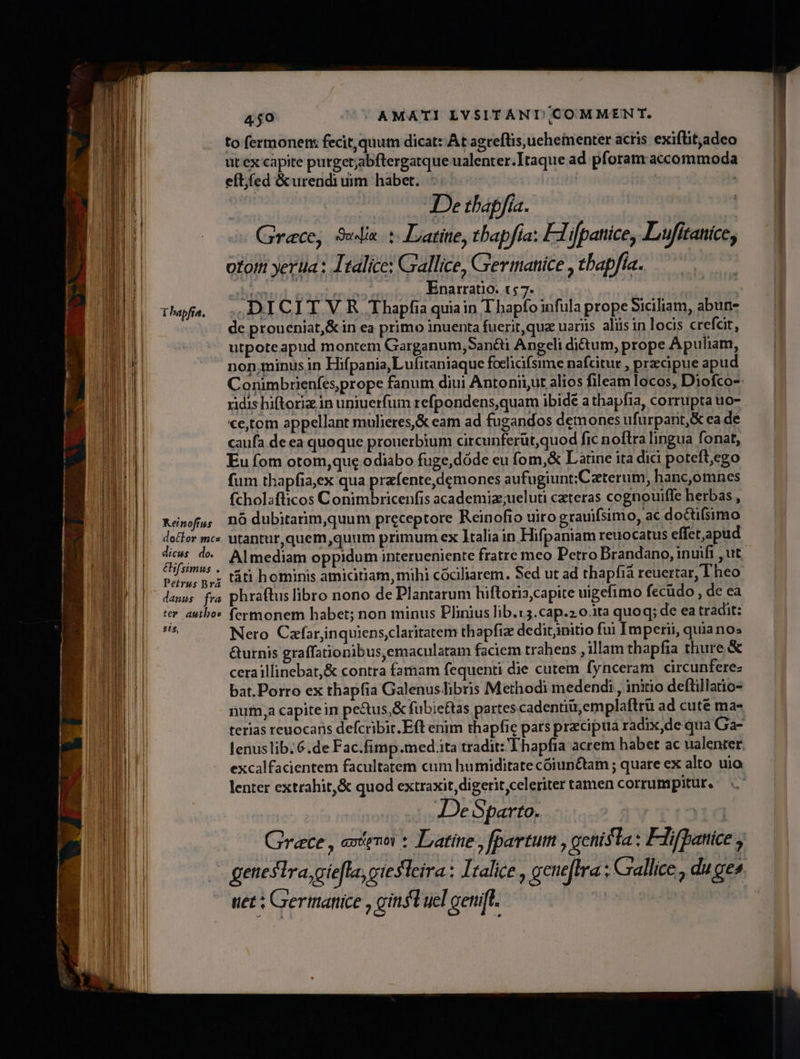 450 AMATI LVSITANI COMMENT.
to fermonem fecit, quum dicat: At agreftis, uehementer acris exiftit, adeo
ut ex capite purget, abftergatque ualenter. Itaque ad pforam accommoda
eft, fed & urendi uim habet.
De thapfia.
Græce, θαψία : Latine, thapfia: Hifpanice, Lufitanice,
otom yerua: Italice: Gallice, Germanice, thapfia.
Enarratio. 157.
Thapfia.
DICITVR Thapfia quia in Thapfo infula prope Siciliam, abun-
de proueniat, & in ea primo inuenta fuerit, quæ uariis aliis in locis crefcit,
utpote apud montem Garganum, Sancti Angeli dictum, prope Apuliam,
non minus in Hifpania, Lufitaniaque fœlicifsime nafcitur, præcipue apud
Conimbrienfes, prope fanum diui Antonii, ut alios fileam locos, Diofco-
ridis hiftoriæ in uniuerfum refpondens, quam ibidē a thapfia, corrupta uo-
ce, tom appellant mulieres, & eam ad fugandos demones ufurpant, & ea de
caufa de ea quoque prouerbium circunferūt, quod fic noftra lingua fonat,
Eu fom otom, que odiabo fuge, dóde eu fom, & Latine ita dici poteft, ego
fum thapfia, ex qua præfente, demones aufugiunt: Cæterum, hanc, omnes
fcholafticos Conimbricenfis academiæ, ueluti cæteras cognouiffe herbas,
Reinofius doctor medicus do. ctifsimus.
nō dubitarim, quum preceptore Reinofio uiro grauifsimo, ac doctifsimo
utantur, quem, quum primum ex Italia in Hifpaniam reuocatus effet, apud
Almediam oppidum interueniente fratre meo Petro Brandano, inuifi, ut
Petrus Brā danus fra ter authoris.
tāti hominis amicitiam, mihi cōciliarem. Sed ut ad thapfiā reuertar, Theo
phraftus libro nono de Plantarum hiftoria, capite uigefimo fecūdo, de ea
fermonem habet; non minus Plinius lib. 13. cap. 20. ita quoq; de ea tradit:
Nero Cæfar, inquiens, claritatem thapfiæ dedit, initio fui Imperii, quia no-
cturnis graffationibus, emaculatam faciem trahens, illam thapfia thure &
cera illinebat, & contra famam fequenti die cutem fynceram circunfere-
bat. Porro ex thapfia Galenus libris Methodi medendi, initio deftillatio-
num, a capite in pectus, & fubiectas partes cadentiū, emplaftrū ad cutē ma-
terias reuocans defcribit. Eft enim thapfię pars præcipua radix, de qua Ga-
lenus lib. 6. de Fac. fimp. med. ita tradit: Thapfia acrem habet ac ualenter
excalfacientem facultatem cum humiditate cōiunctam; quare ex alto uio
lenter extrahit, & quod extraxit, digerit, celeriter tamen corrumpitur.
De Sparto.
Græce, : Latine, fpartum, genista: Hifpanice,
genestra, giefta, giesteira: Italice, geneftra: Gallice, du ge-
net: Germanice, ginst uel genift.